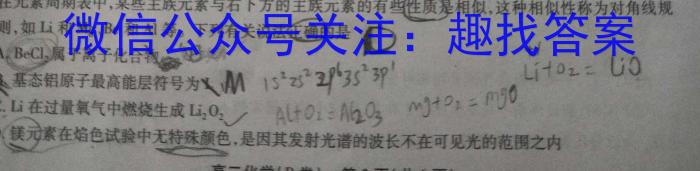 在元素周期表中,某些主族元素与右下方的主族元素的有些性质是相似,这种相似性称为对角线规
则,如 Li 和
微信公众号关注：趣找答案
A. BeCl₂属于离子化合物
基态铝原子最高能层符号为 M 1s²2s²2p⁶3s²3p¹ Li+O₂=LiO
C. Li 在过量氧气中燃烧生成 Li₂O₂ Al+O₂=Al₂O₃ mg+O₂=mgO
镁元素在焰色试验中无特殊颜色,是因其发射光谱的波长不在可见光的范围之内